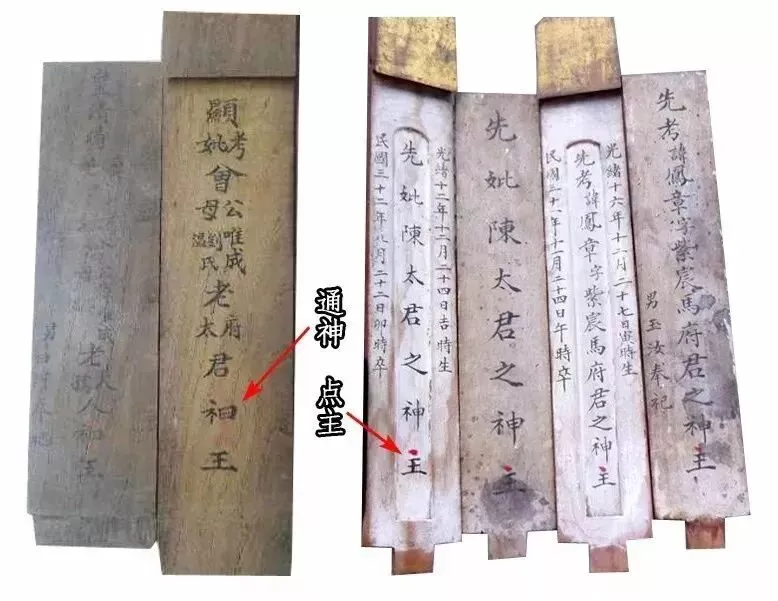 顯
考
妣
會
公唯成
母劉氏
溫
老
府
太
君
神
王
通神
点主
光緒十二年十二月二十四日吉時生
先妣陳太君之神主
民國三十二年八月二十二日卯時卒
先妣陳太君之神主
光緒十六年十二月二十七日寅時生
先考諱鳳章字紫宸馬府君之神主
民國三十一年十二月二十四日午時卒
先考諱鳳章字紫宸馬府君之神主
男玉汝奉祀